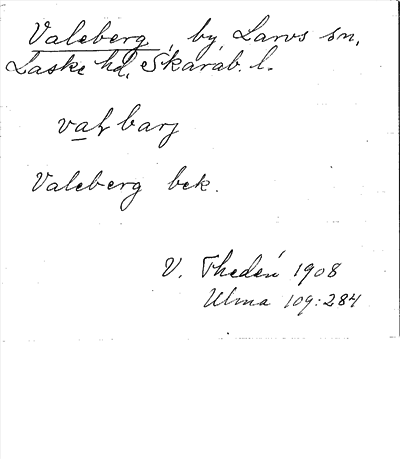 Valeberg, by, Larvs sn,
Laske hd, Skarab. l.
valbarj
Valeberg bek.
V. Thedén 1908
Ulma 109:284